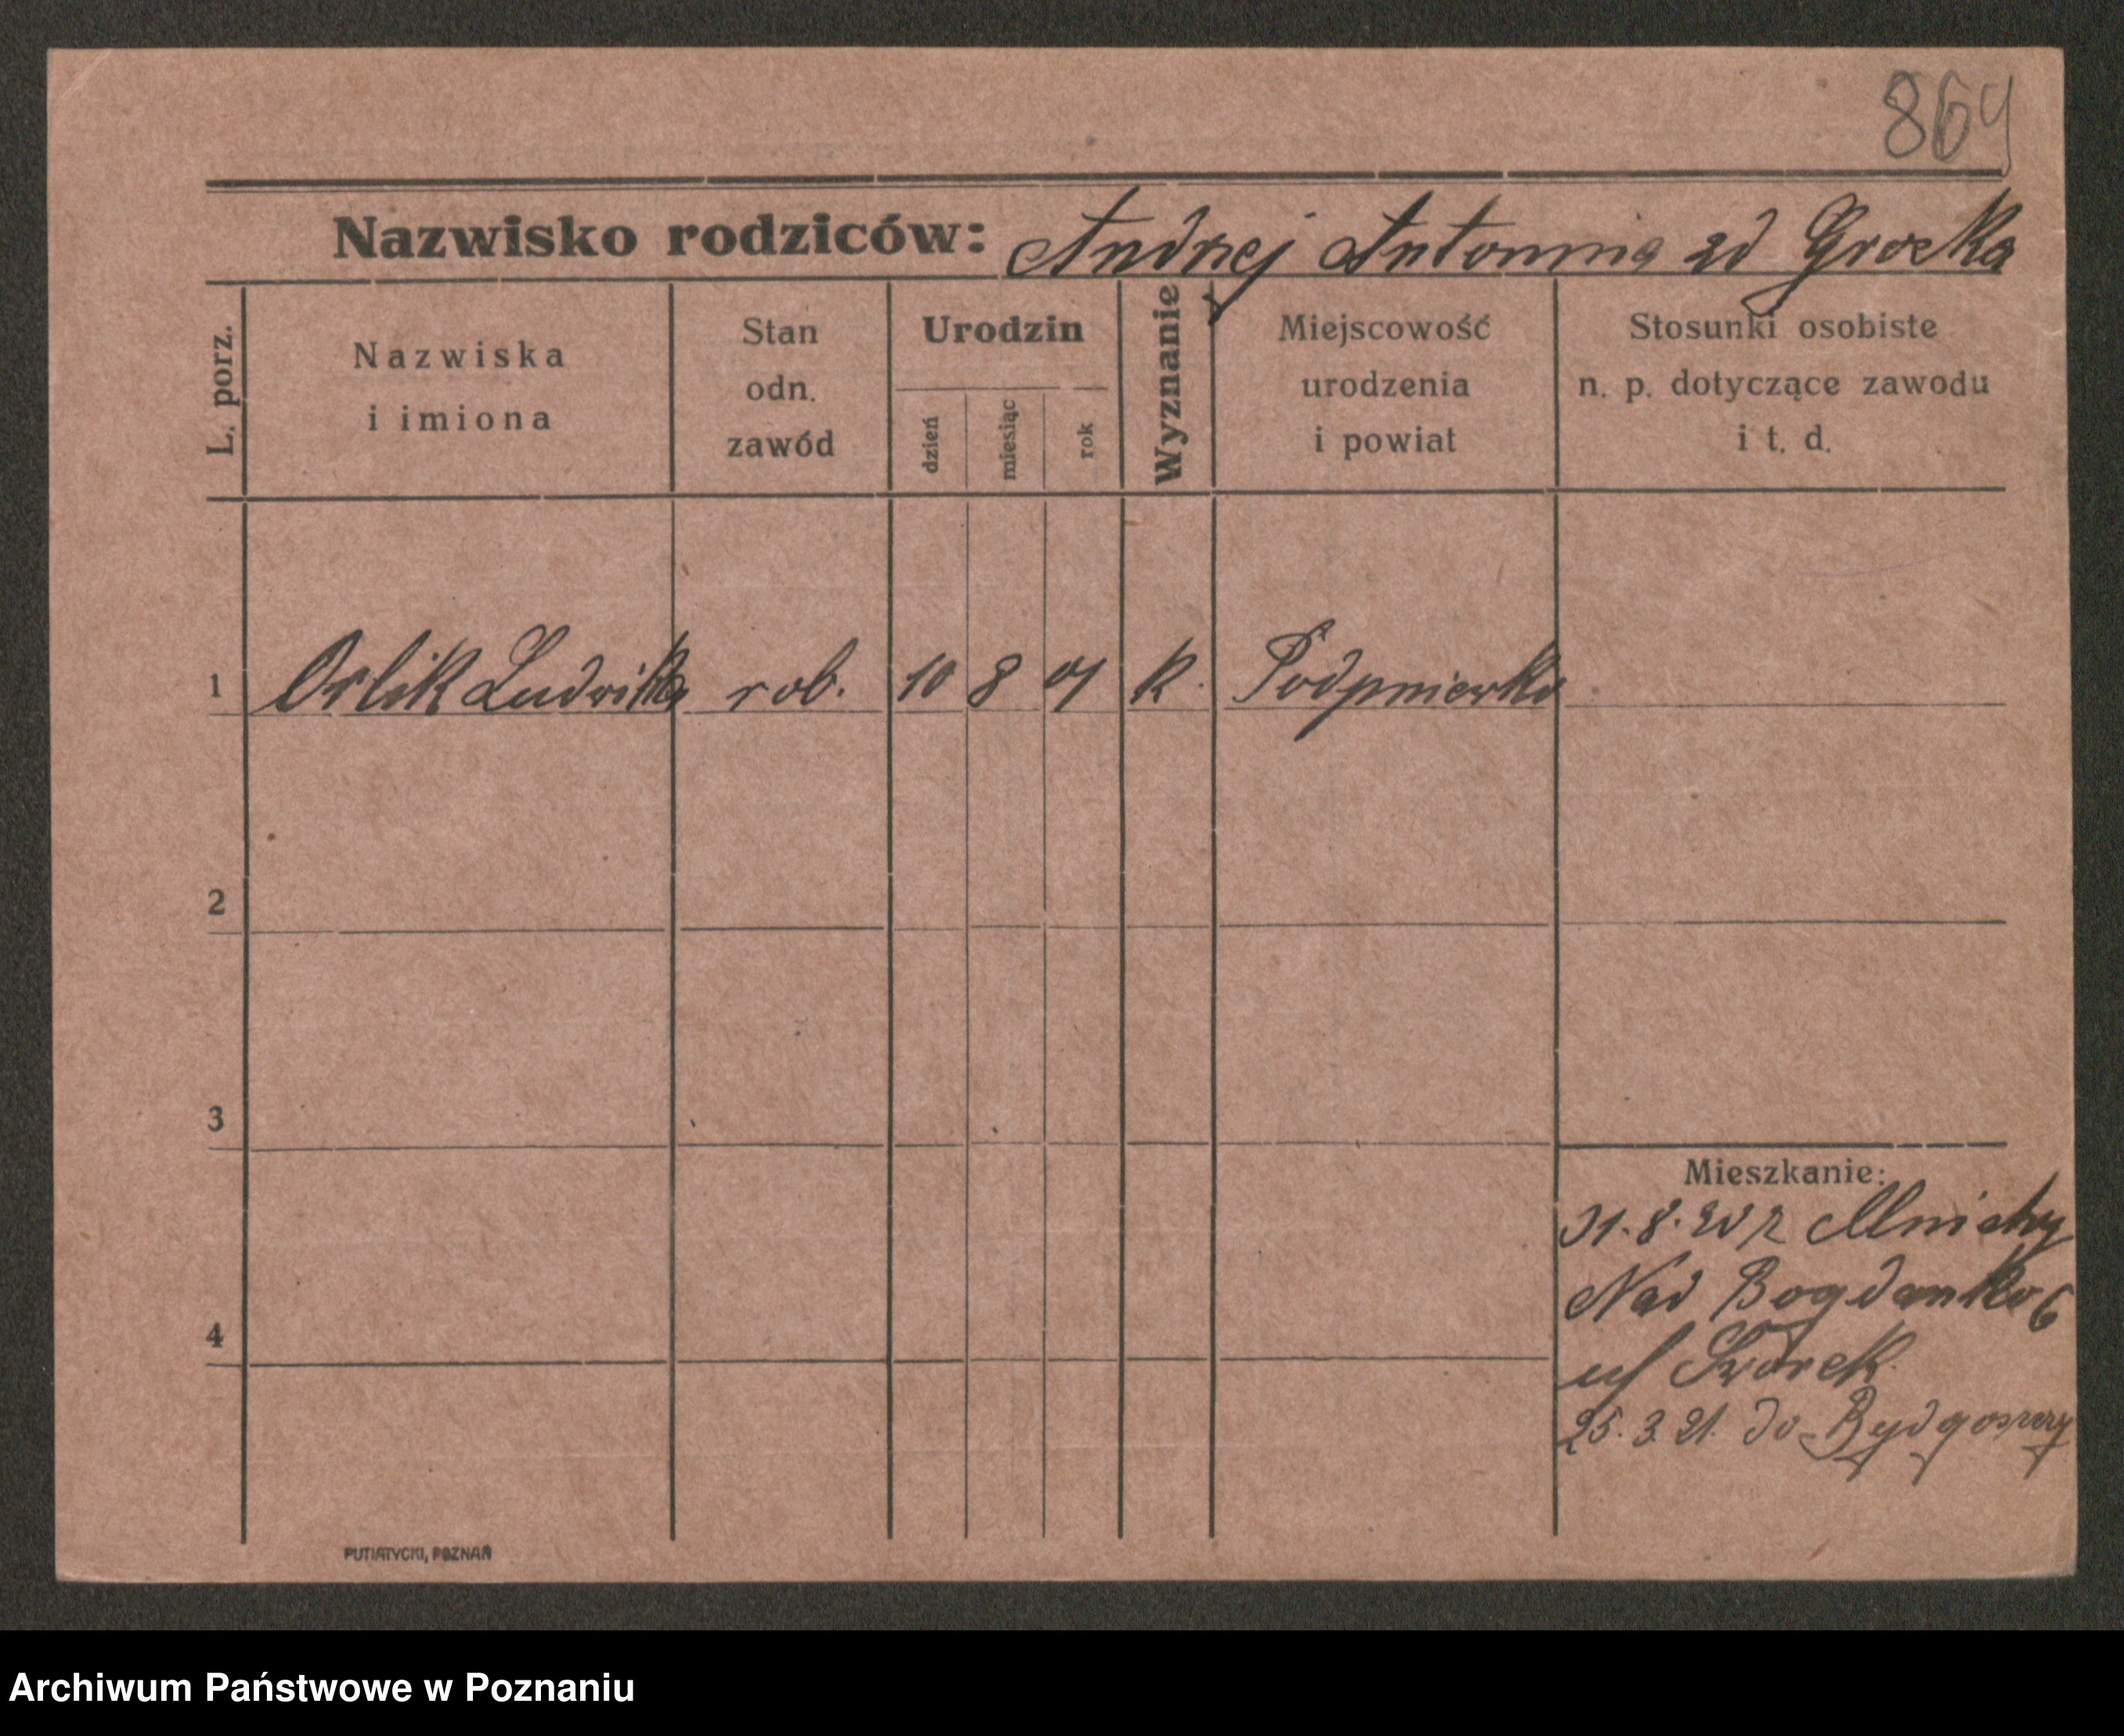 869
Nazwisko rodziców: Andrzej Antonina zd Grocka
L. porz.
Nazwiska
i imiona
Stan
odn.
zawód
Urodzin
dzień
miesiąc
rok
Wyznanie
Miejscowość
urodzenia
i powiat
Stosunki osobiste
n. p. dotyczące zawodu
i t. d.
1 Orlik Ludwika rob. 10 8 01 k. Podpniewki
2
3
4
Mieszkanie:
31.8.20 z Mnichy
Nad Bogdanką 6
Dworek
25.3.21. do Bydgoszczy
PUTIATYCKI, POZNAŃ
Archiwum Państwowe w Poznaniu